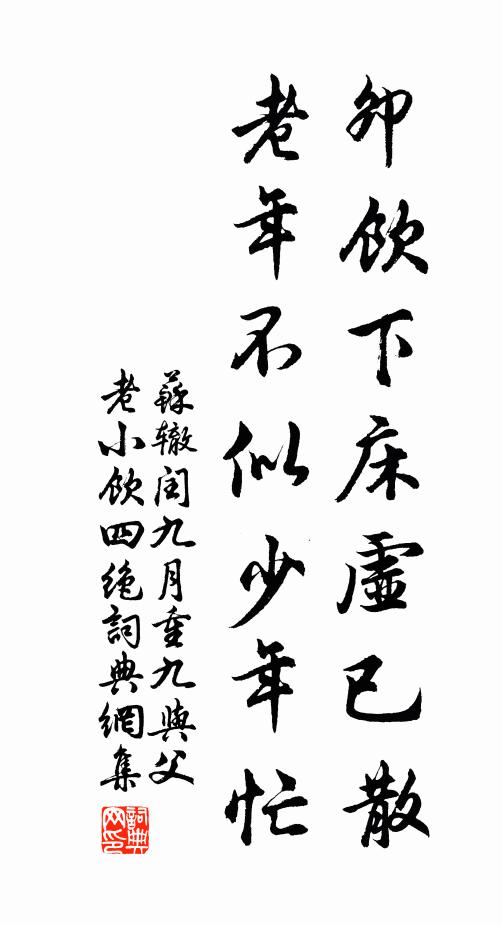 卯飲下床虛已散
老年不似少年忙
蘇轍閏九月重九與父
老小飲四絕詞典網集
詞典
网印